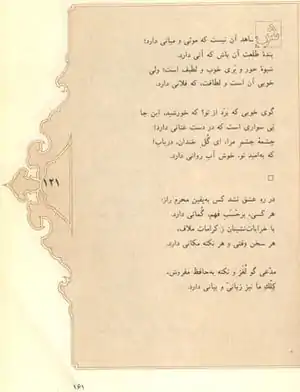 شاهد آن نیست که موئی و میانی دارد؛
بندهٔ طلعت آن باش که آنی دارد.
شیوهٔ حور و پری خوب و لطیف است؛ ولی
خوبی آن است و لطافت، که فلانی دارد.
گوی خوبی که بَرَد از تو؟ که خورشید، این جا
نِی سواری است که در دست عنانی دارد!
چشمهٔ چشم مرا، ای گُل خندان، دریاب!
که به‌امید تو، خوش آب روانی دارد.
۱۲۱
در رهِ عشق نشد کس به‌یقین محرم راز؛
هر کسی، برحَسَبِ فهم، گُمانی دارد.
با خرابات‌نشینان ز کرامات ملاف،
هر سخن وقتی و هر نکته مکانی دارد.
مدّعی گو لُغَز و نکته به‌حافظ مفروش،
کِلْکِ ما نیز زبانیّ و بیانی دارد.
۱۶۱